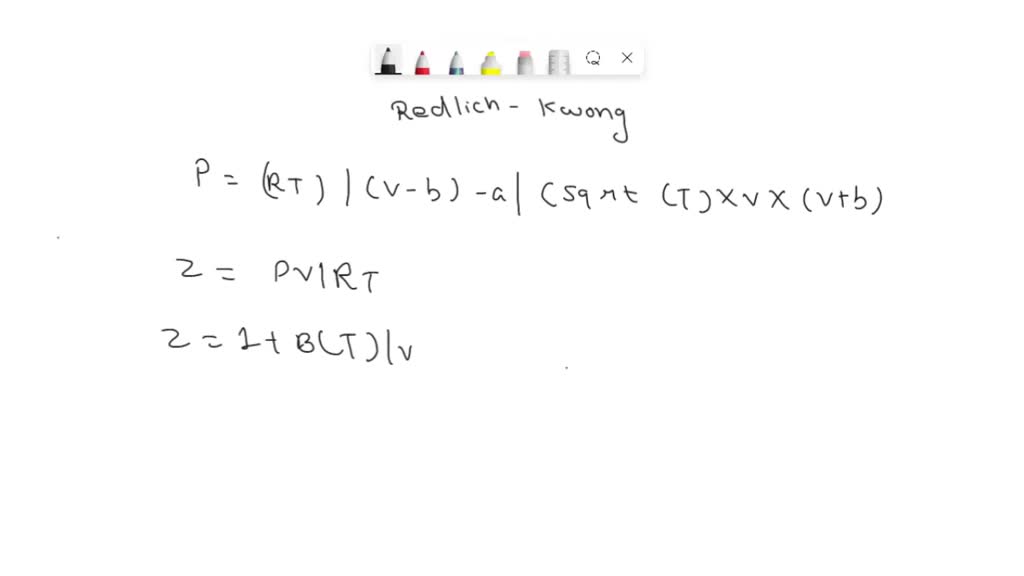 Redlich - Kwong
P = (RT) | (V-b) -a | (sqrt (T) x v x (v+b)
Z = PV|RT
Z = 1 + B(T)|v